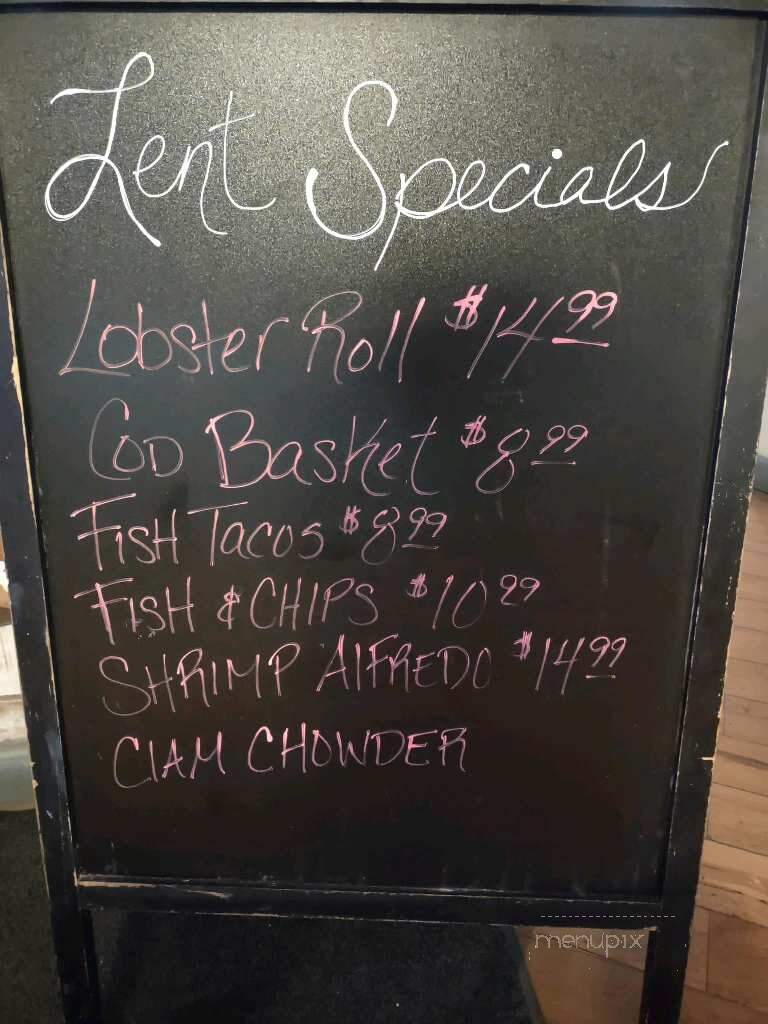 Lent Specials
Lobster Roll $14.99
COD Basket $8.99
FISH Tacos $8.99
FISH & CHIPS $10 99
SHRIMP AlFREDO $14.99
ClAM CHOWDER
menupix